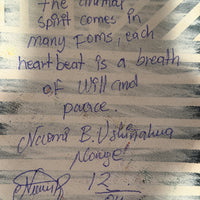 the animal
spirit comes in
many Foms, each
heartbeat is a breath
of Will and
peace.
Naomi B.
12